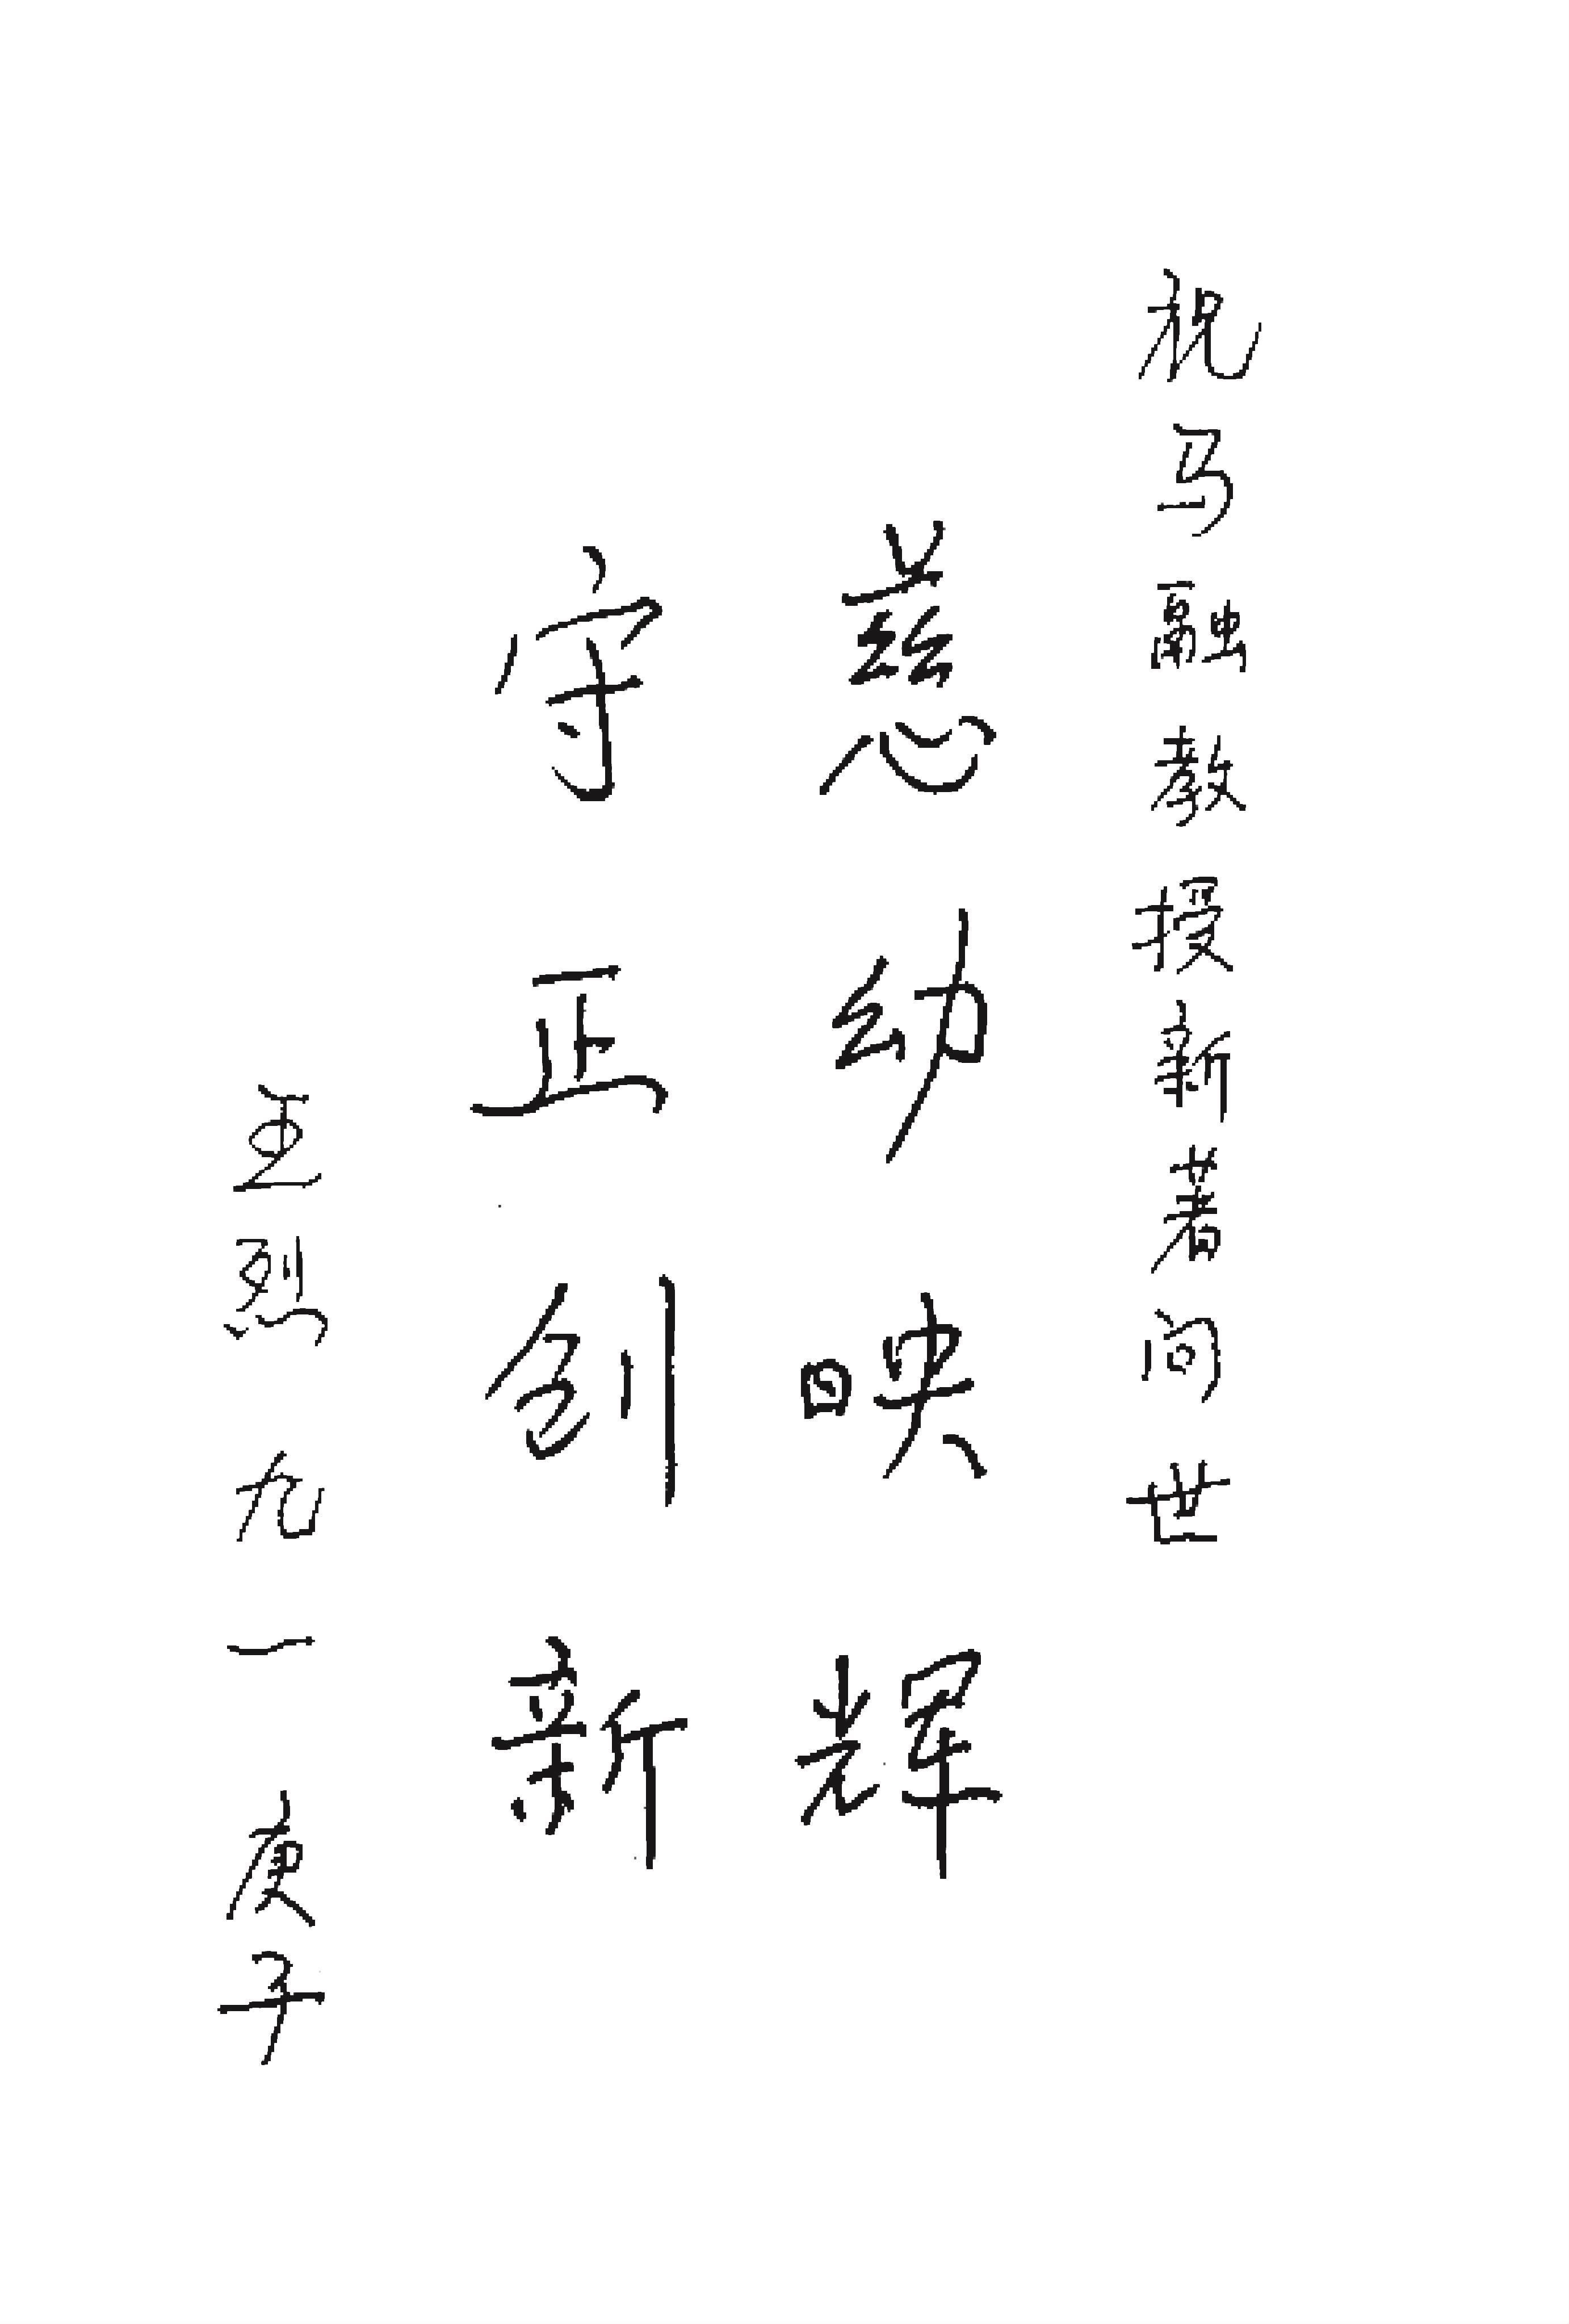 祝马融教授新著问世
慈幼映辉
守正创新
王烈 九一 庚子